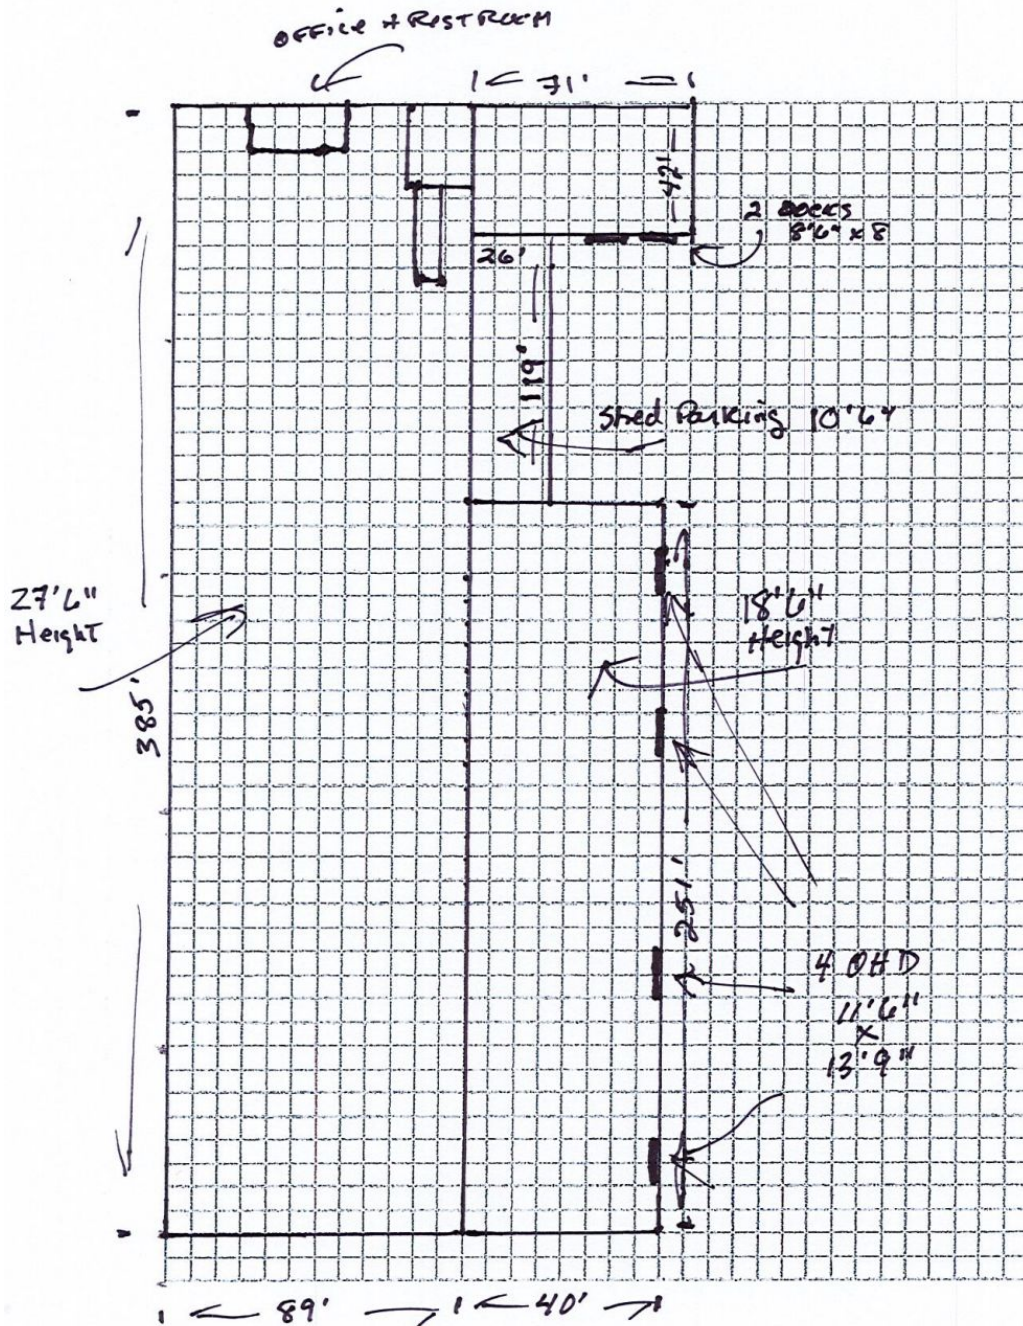 OFFICE + RESTROOM
71'
42'
2 DOCKS
8'6" x 8
26'
119'
Shed Parking 10'6"
27'6"
Height
18'6"
Height
385'
251'
4 OHD
11'6"
x
13'9"
89'
40'